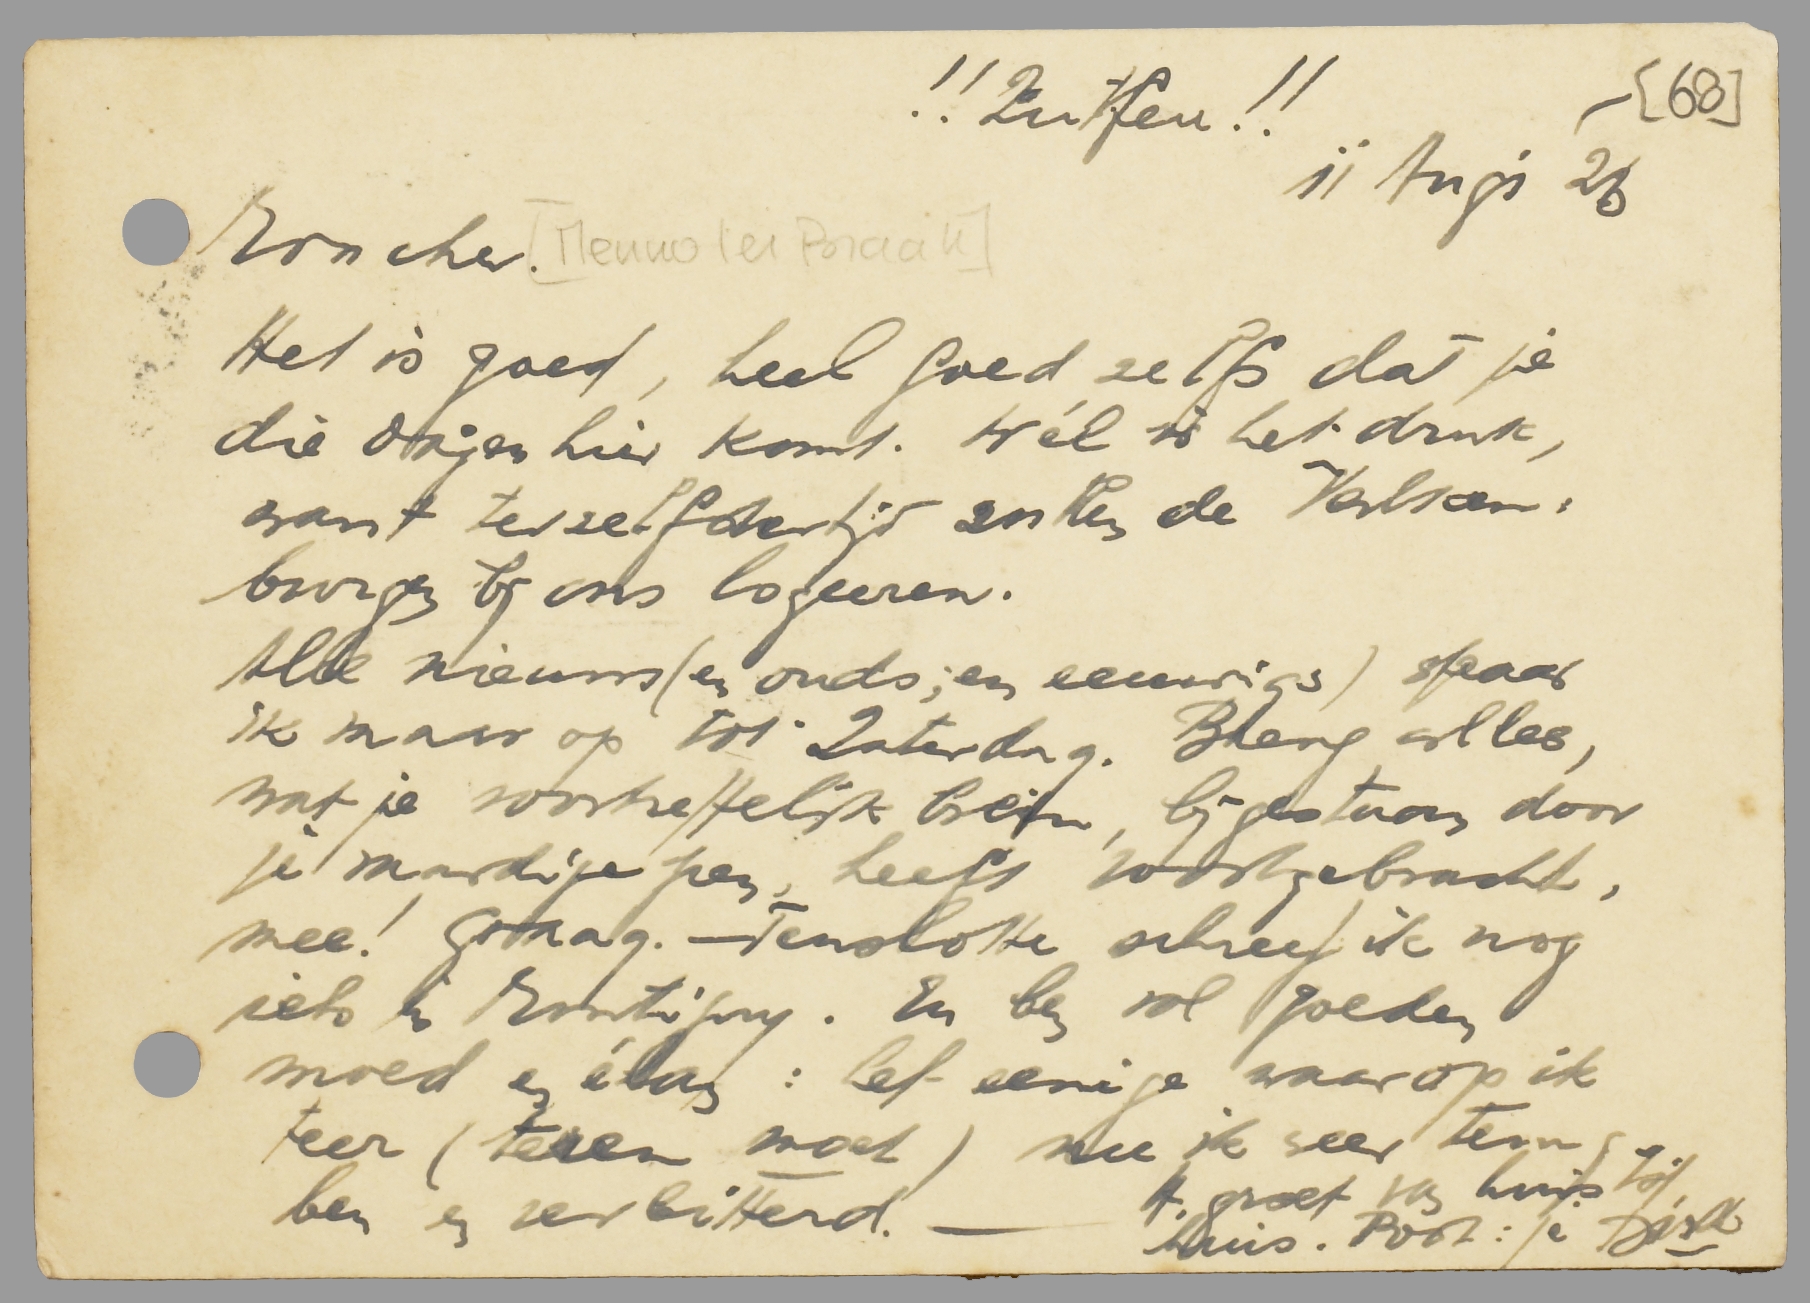 !! Zutfen !!
[68]
11 Aug: 26
Mon cher. [Menno ter Braak]
Het is goed, heel goed zelfs dat je
die dagen hier komt. Wél is het druk,
want terzelfdertijd zullen de Valken:
burgen bij ons logeeren.
Alle nieuws (en ouds; en eeuwigs) spaar
ik maar op tot Zaterdag. Breng alles,
wat je voortreffelijk brein, bijgestaan door
je waardige pen, heeft voortgebracht,
mee! Graag. — Tenslotte schreef ik nog
iets in Montigny. En ben vol goeden
moed en élan : het eenige waarop ik
teer (teren moet) nu ik weer terug
ben en verbitterd. —
H. groet van huis tot
huis. Post: je Dirk